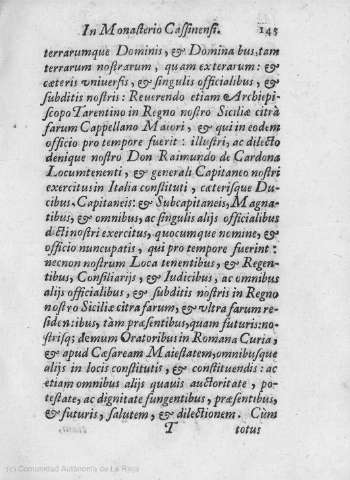 In Monasterio Cassinensi. 145
terrarumque Dominis, & Domina bus, tam
terrarum nostrarum, quam exterarum: &
cæteris vniuersis, & singulis officialibus, &
subditis nostris: Reuerendo etiam Archiepi-
scopo Tarentino in Regno nostro Siciliæ citrà
farum Cappellano Maiori, & qui in eodem
officio pro tempore fuerit: illustri, ac dilecto
denique nostro Don Raimundo de Cardona
Locumtenenti, & generali Capitaneo nostri
exercitus in Italia constituti, cæterisque Du-
cibus. Capitaneis: & Subcapitaneis, Magna-
tibus, & omnibus, ac singulis alijs officialibus
dicti nostri exercitus, quocumque nomine, &
officio nuncupatis, qui pro tempore fuerint:
necnon nostrum Loca tenentibus, & Regen-
tibus, Consiliarijs, & Iudicibus, ac omnibus
alijs officialibus, & subditis nostris in Regno
nostro Siciliæ citra farum, & vltra farum re-
sidentibus, tàm præsentibus, quam futuris: no-
strisqs demum Oratoribus in Romana Curia,
& apud Cæsaream Maiestatem, omnibusque
alijs in locis constitutis, & constituendis: ac
etiam omnibus alijs quauis auctoritate, po-
testate, ac dignitate fungentibus, præsentibus,
& futuris, salutem, & dilectionem. Cùm
T totus
(c) Comunidad Autónoma de La Rioja